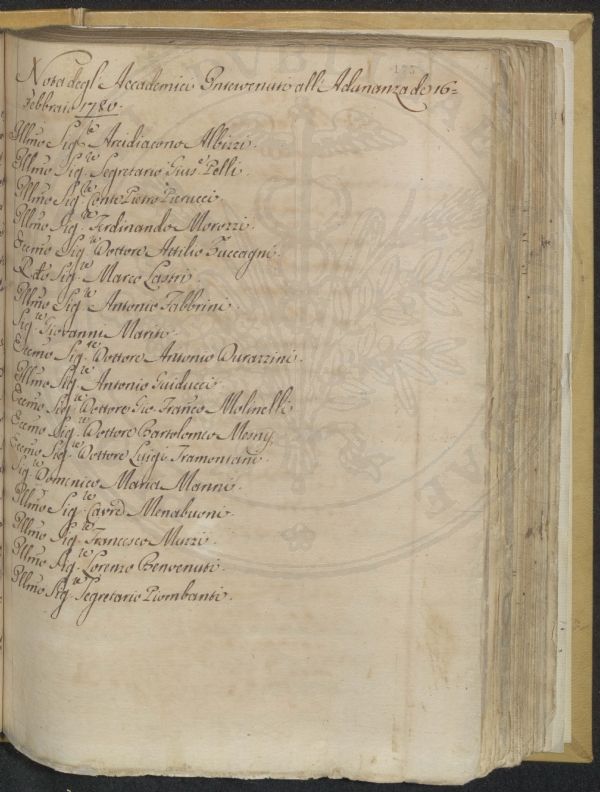 175
Nota degl' Accademici Intervenuti all' Adunanza de 16=
Febbraio 1780.
Illmo Sigre Arcidiacono Albizzi.
Illmo Sigre Segretario Giuse Pelli.
Illmo Sigre Conte Pietro Pierucci.
Illmo Sigre Ferdinando Morozzi.
Eccmo Sigre Dottore Attilio Zuccagni.
Rdo Sigre Marco Lastri.
Illmo Sigre Antonio Fabbrini.
Sigre Giovanni Mariti.
Eccmo Sigre Dottore Antonio Durazzini.
Illmo Sigre Antonio Guiducci.
Eccmo Sigre Dottore Gio. Franco Molinelli
Eccmo Sigre Dottore Bartolomeo Mesny.
Eccmo Sigre Dottore Luigi Tramontani.
Sigre Domenico Maria Manni.
Illmo Sigre Cavre Menabuoni.
Illmo Sigre Francesco Muzzi.
Illmo Sigre Lorenzo Benvenuti.
Illmo Sigre Segretario Piombanti.